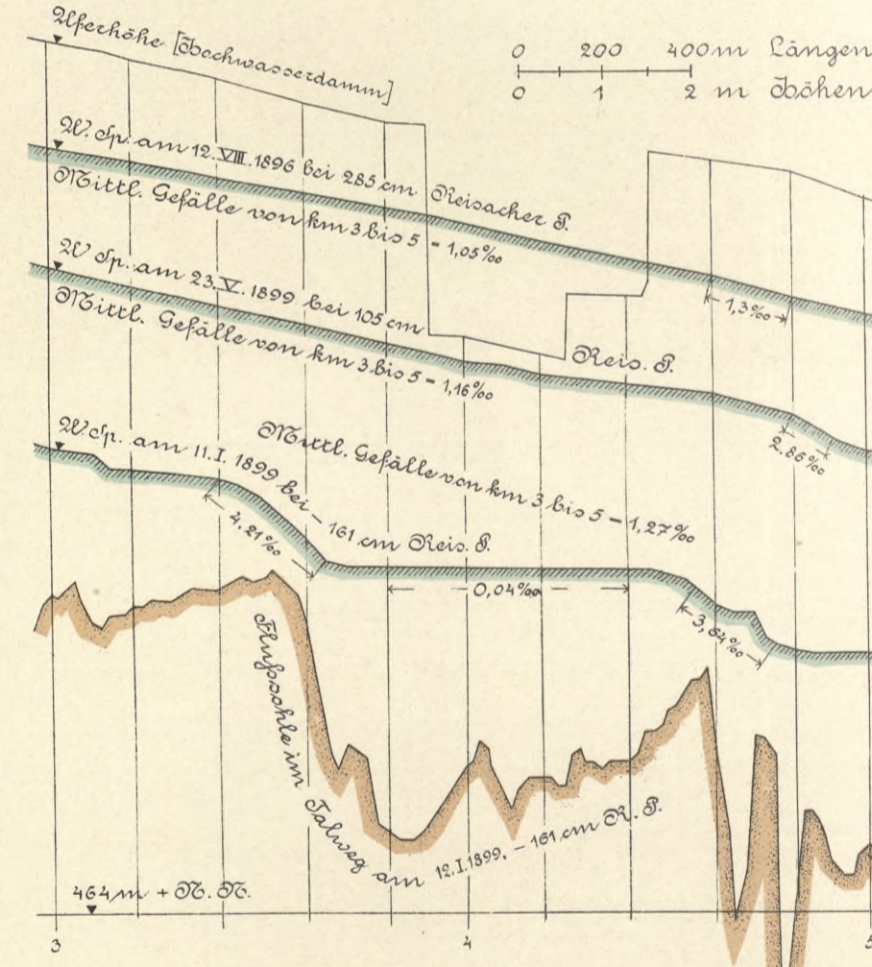 Uferhöhe [Hochwasserdamm]
0 200 400m Längen
0 1 2 m Höhen
W. Sp. am 12. VIII. 1896 bei 285 cm Reisacher P.
Mittl. Gefälle von km 3 bis 5 = 1,05‰
1,3‰
W. Sp. am 23. V. 1899 bei 105 cm
Reis. P.
Mittl. Gefälle von km 3 bis 5 = 1,16‰
2.86‰
W. Sp. am 11. I. 1899 bei - 161 cm Reis. P.
Mittl. Gefälle von km 3 bis 5 = 1,27‰
4,21‰
0,04‰
Flußsohle im Talweg am 12.I.1899. - 161 cm R. P.
464 m + N. N.
3 4 5